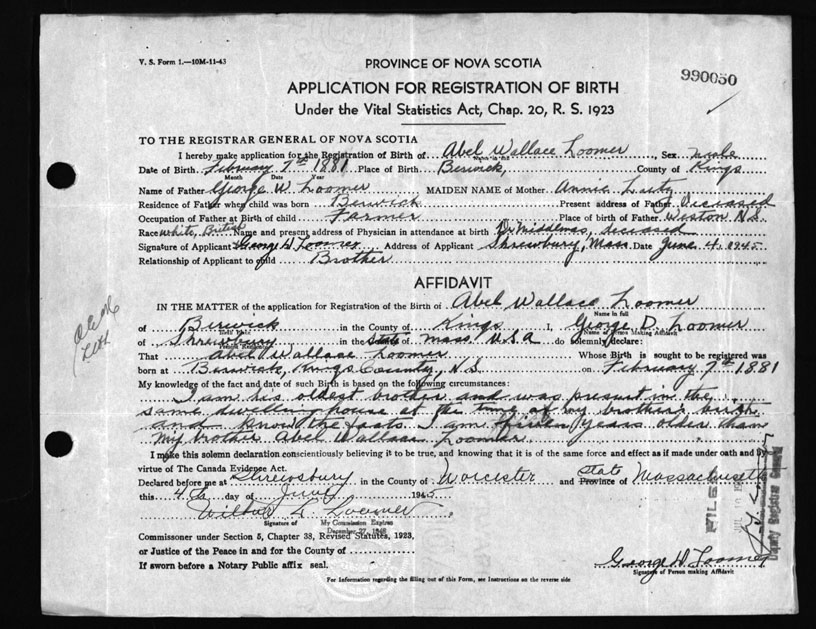 V. S. Form 1.—10M-11-43
PROVINCE OF NOVA SCOTIA
990050
APPLICATION FOR REGISTRATION OF BIRTH
Under the Vital Statistics Act, Chap. 20, R. S. 1923
TO THE REGISTRAR GENERAL OF NOVA SCOTIA
I hereby make application for the Registration of Birth of Abel Wallace Loomer, Sex male
Name in full
Date of Birth February 7th 1881 Place of Birth Berwick, County of Kings
Month Date Year
Name of Father George W. Loomer MAIDEN NAME of Mother Annie Lutz
Residence of Father when child was born Berwick Present address of Father Deceased
Occupation of Father at Birth of child Farmer Place of Birth of Father Weston N.S.
Race white, British Name and present address of Physician in attendance at birth Dr Middlemas, deceased
Signature of Applicant George D. Loomer Address of Applicant Shrewbury, Mass. Date June 4, 1945
Relationship of Applicant to child Brother
AFFIDAVIT
IN THE MATTER of the application for Registration of the Birth of Abel Wallace Loomer
Name in full
of Berwick in the County of Kings I, George D. Loomer
Name of Person Making Affidavit
of Shrewbury in the State of Mass. U.S.A do solemnly declare:
That Abel Wallace Loomer Whose Birth is sought to be registered was
born at Berwick, Kings County, N.S. on February 7th 1881
My knowledge of the fact and date of such Birth is based on the following circumstances:
I am his oldest brother and was present in the
same dwelling house at the time of my brother's birth
and know the facts. I am years older than
my brother Abel Wallace Loomer
I make this solemn declaration conscientiously believing it to be true, and knowing that it is of the same force and effect as if made under oath and by
virtue of The Canada Evidence Act.
Declared before me at Shrewsbury in the County of Worcester and State Province of Massachusetts
this 4th day of June 1945
Wilbur L. Loomer
Signature of My Commission Expires
December 27, 1946
Commissoner under Section 5, Chapter 38, Revised Statutes, 1923,
or Justice of the Peace in and for the County of
If sworn before a Notary Public affix seal.
George D. Loomer
Signature of Person making Affidavit
For Information regarding the filling out of this Form, see Instructions on the reverse side
FILED
Deputy Registrar General